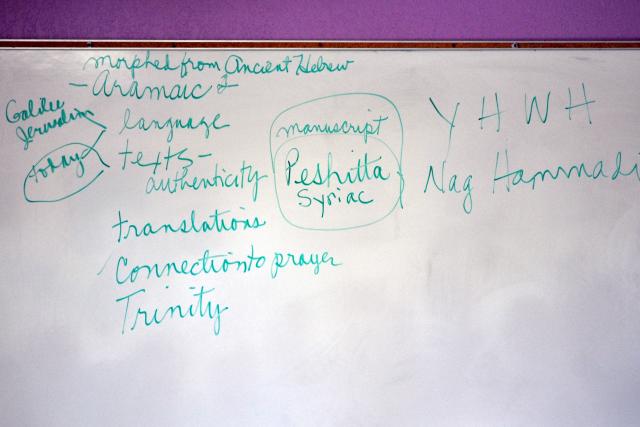 morphed from Ancient Hebrew
- Aramaic -
Galilee
Jerusalem
today
language
texts -
authenticity
translations
Connection to prayer
Trinity
manuscript
Peshitta
Syriac
YHWH
Nag Hammadi